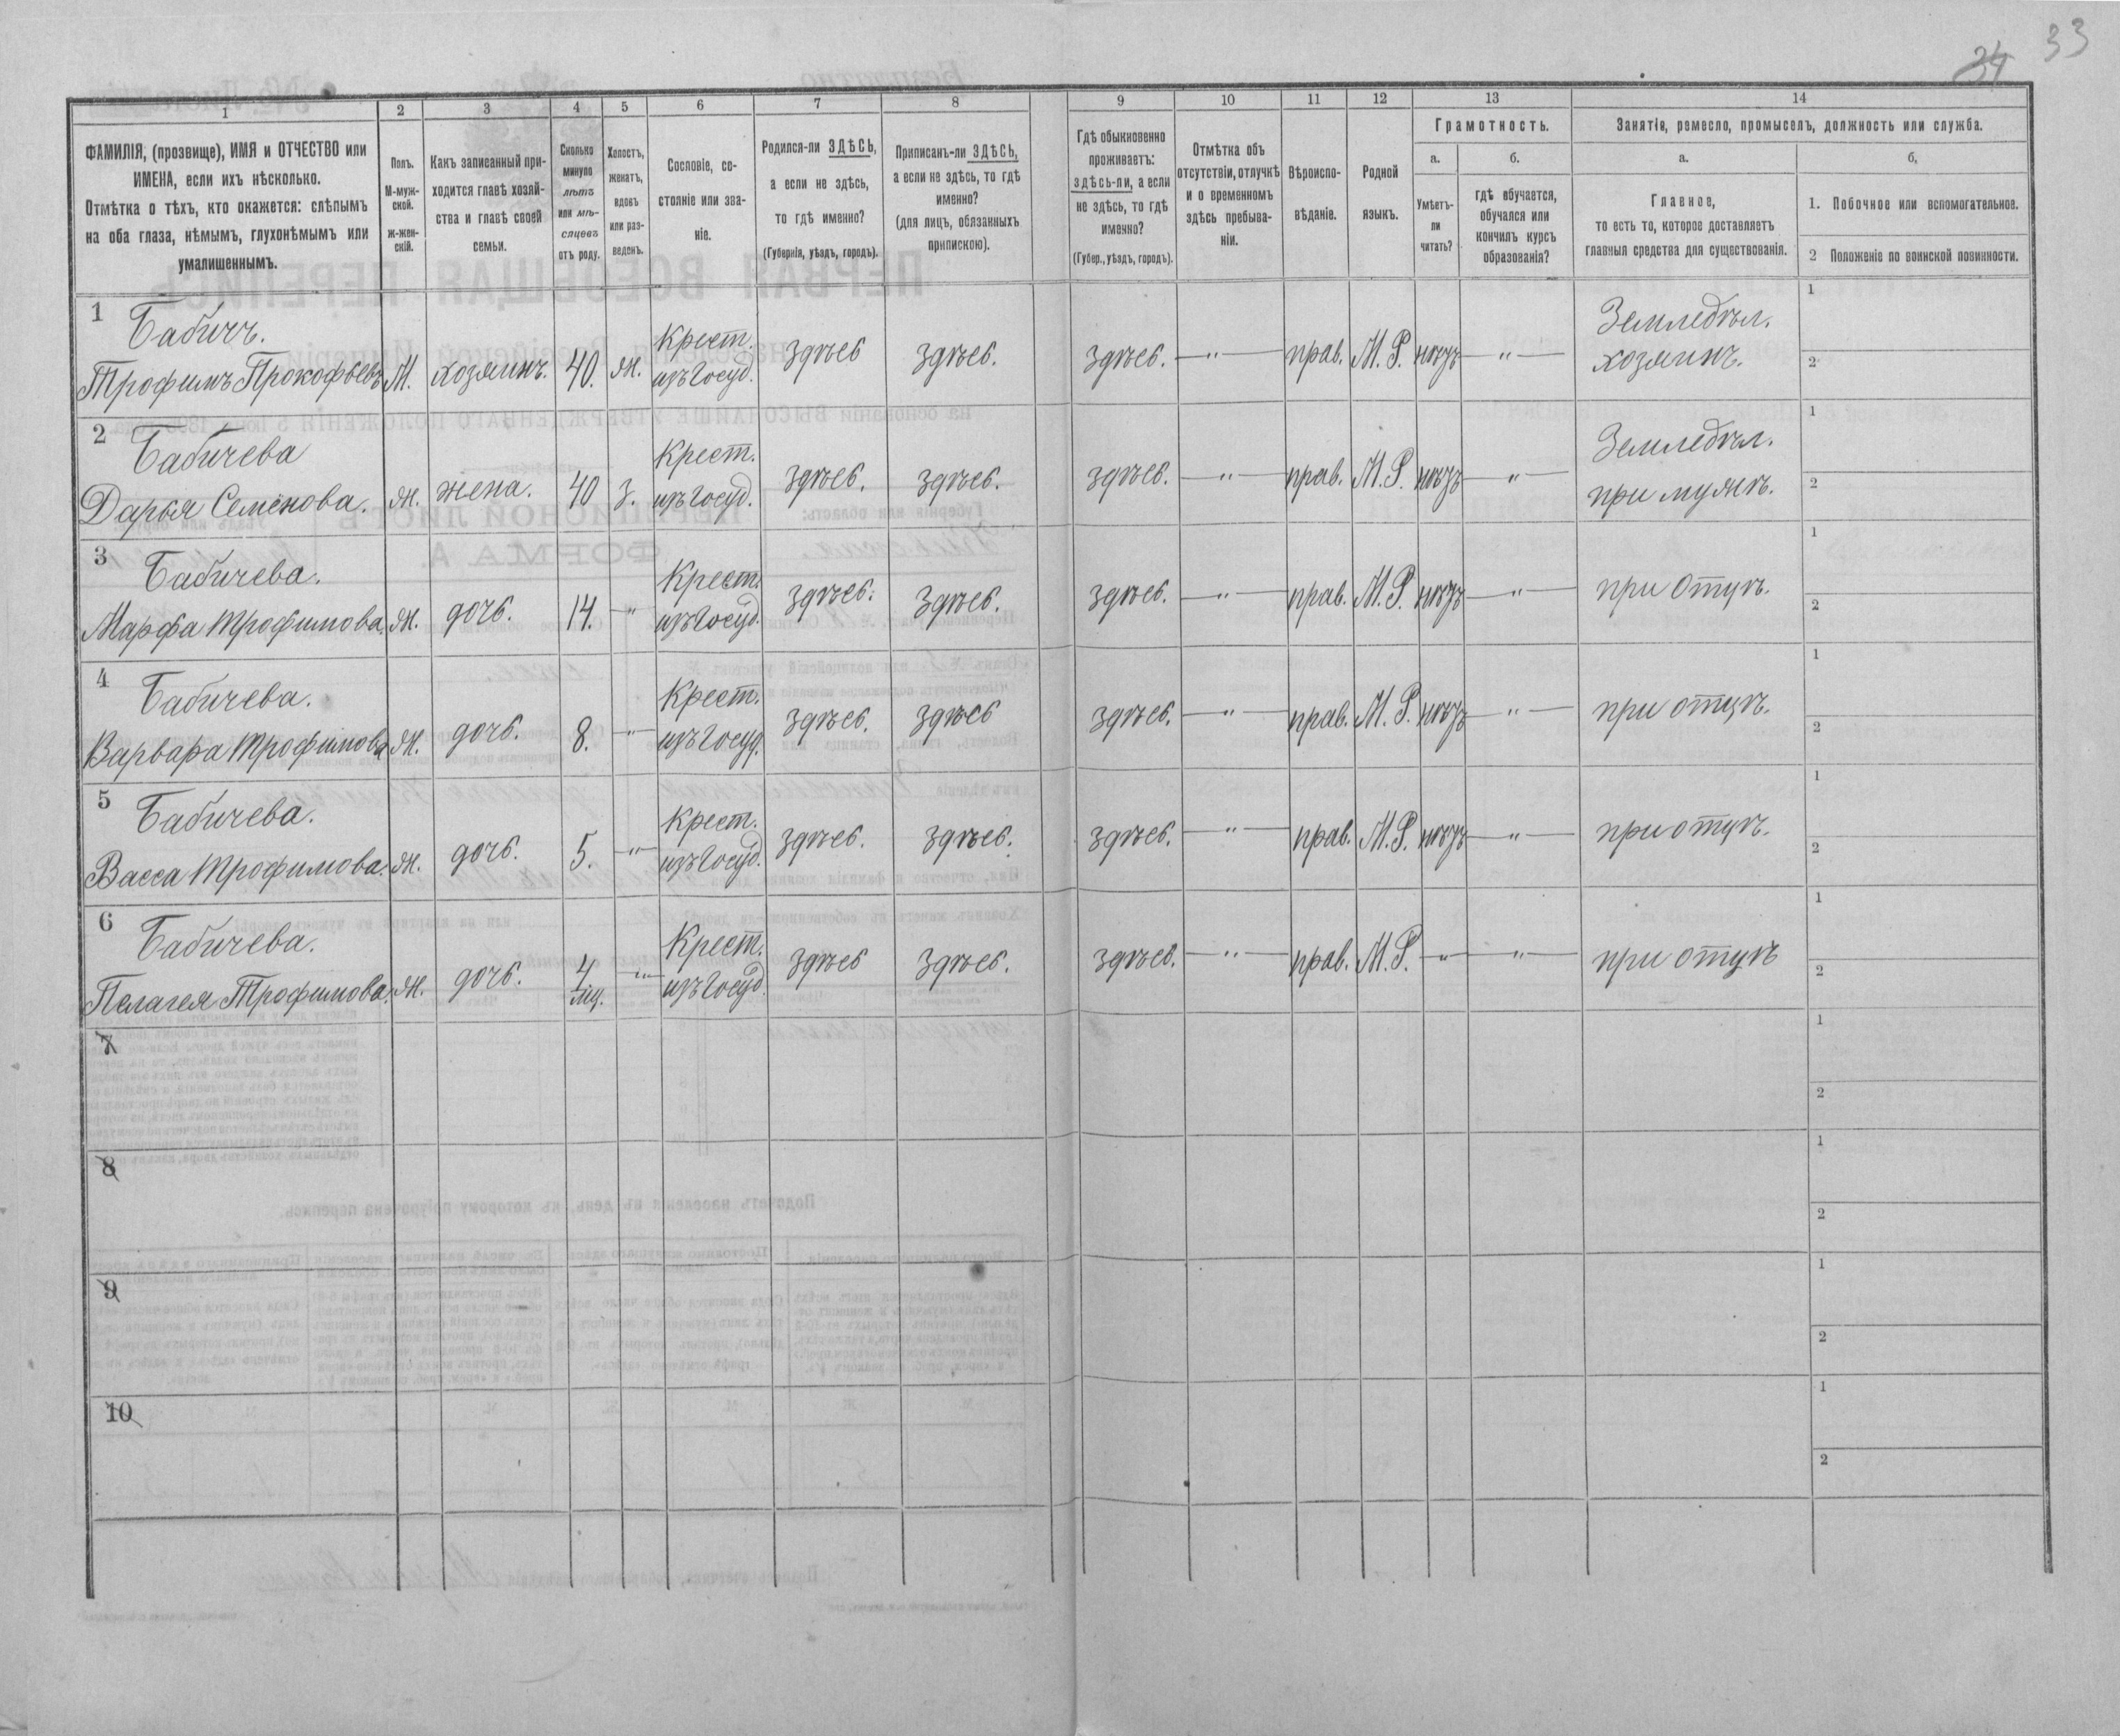 33
34
1
2
3
4
5
6
7
8
9
10
11
12
13
14
ФАМИЛІЯ, (прозвище), ИМЯ и ОТЧЕСТВО или
ИМЕНА, если ихъ нѣсколько.
Отмѣтка о тѣхъ, кто окажется: слѣпымъ
на оба глаза, нѣмымъ, глухонѣмымъ или
умалишеннымъ.
Полъ.
М-муж-
ской.
ж-жен-
скій.
Какъ записанный при-
ходится главѣ хозяй-
ства и главѣ своей
семьи.
Сколько
минуло
лѣтъ
или мѣ-
сяцевъ
отъ роду.
Холостъ,
женатъ,
вдовъ
или раз-
веденъ.
Сословіе, со-
стояніе или зва-
ніе.
Родился-ли ЗДѢСЬ,
а если не здѣсь,
то гдѣ именно?
(Губернія, уѣздъ, городъ).
Приписанъ-ли ЗДѢСЬ,
а если не здѣсь, то гдѣ
именно?
(для лицъ, обязанныхъ
припискою).
Гдѣ обыкновенно
проживаетъ:
здѣсь-ли, а если
не здѣсь, то гдѣ
именно?
(Губер., уѣздъ, городъ).
Отмѣтка объ
отсутствіи, отлучкѣ
и о временномъ
здѣсь пребыва-
ніи.
Вѣроиспо-
вѣданіе.
Родной
языкъ.
Грамотность.
а.
б.
Умѣетъ-
ли
читать?
гдѣ обучается,
обучался или
кончилъ курсъ
образованія?
Занятія, ремесло, промыселъ, должность или служба.
а.
б,
Главное,
то есть то, которое доставляетъ
главныя средства для существованія.
1. Побочное или вспомогательное.
2 Положеніе по воинской повинности.
1
Бабичъ.
Трофимъ Прокофьевъ М. хозяинъ. 40. ж. Крест. изъ госуд. здѣсь здѣсь. здѣсь. — " — прав. М. Р. нѣтъ — " — Земледѣл. хозяинъ.
1
2
2
Бабичева
Дарья Семенова. ж. жена. 40 з. Крест. изъ госуд. здѣсь. здѣсь. здѣсь. — " — прав. М. Р. нѣтъ — " — Земледѣл. при мужѣ.
1
2
3
Бабичева.
Марфа Трофимова. ж. дочь. 14. — " Крест. изъ госуд. здѣсь. здѣсь. здѣсь. — " — прав. М. Р. нѣтъ — " — при отцѣ.
1
2
4
Бабичева.
Варвара Трофимова ж. дочь. 8. — " Крест. изъ госуд. здѣсь. здѣсь здѣсь. — " — прав. М. Р. нѣтъ — " — при отцѣ.
1
2
5
Бабичева.
Васса Трофимова. ж. дочь. 5. — " Крест. изъ госуд. здѣсь. здѣсь. здѣсь. — " — прав. М. Р. нѣтъ — " — при отцѣ.
1
2
6
Бабичева.
Пелагея Трофимова. ж. дочь. 4 мц. — " Крест. изъ госуд. здѣсь здѣсь. здѣсь. — " — прав. М. Р. — " — — " — при отцѣ
1
2
7
1
2
8
1
2
9
1
2
10
1
2